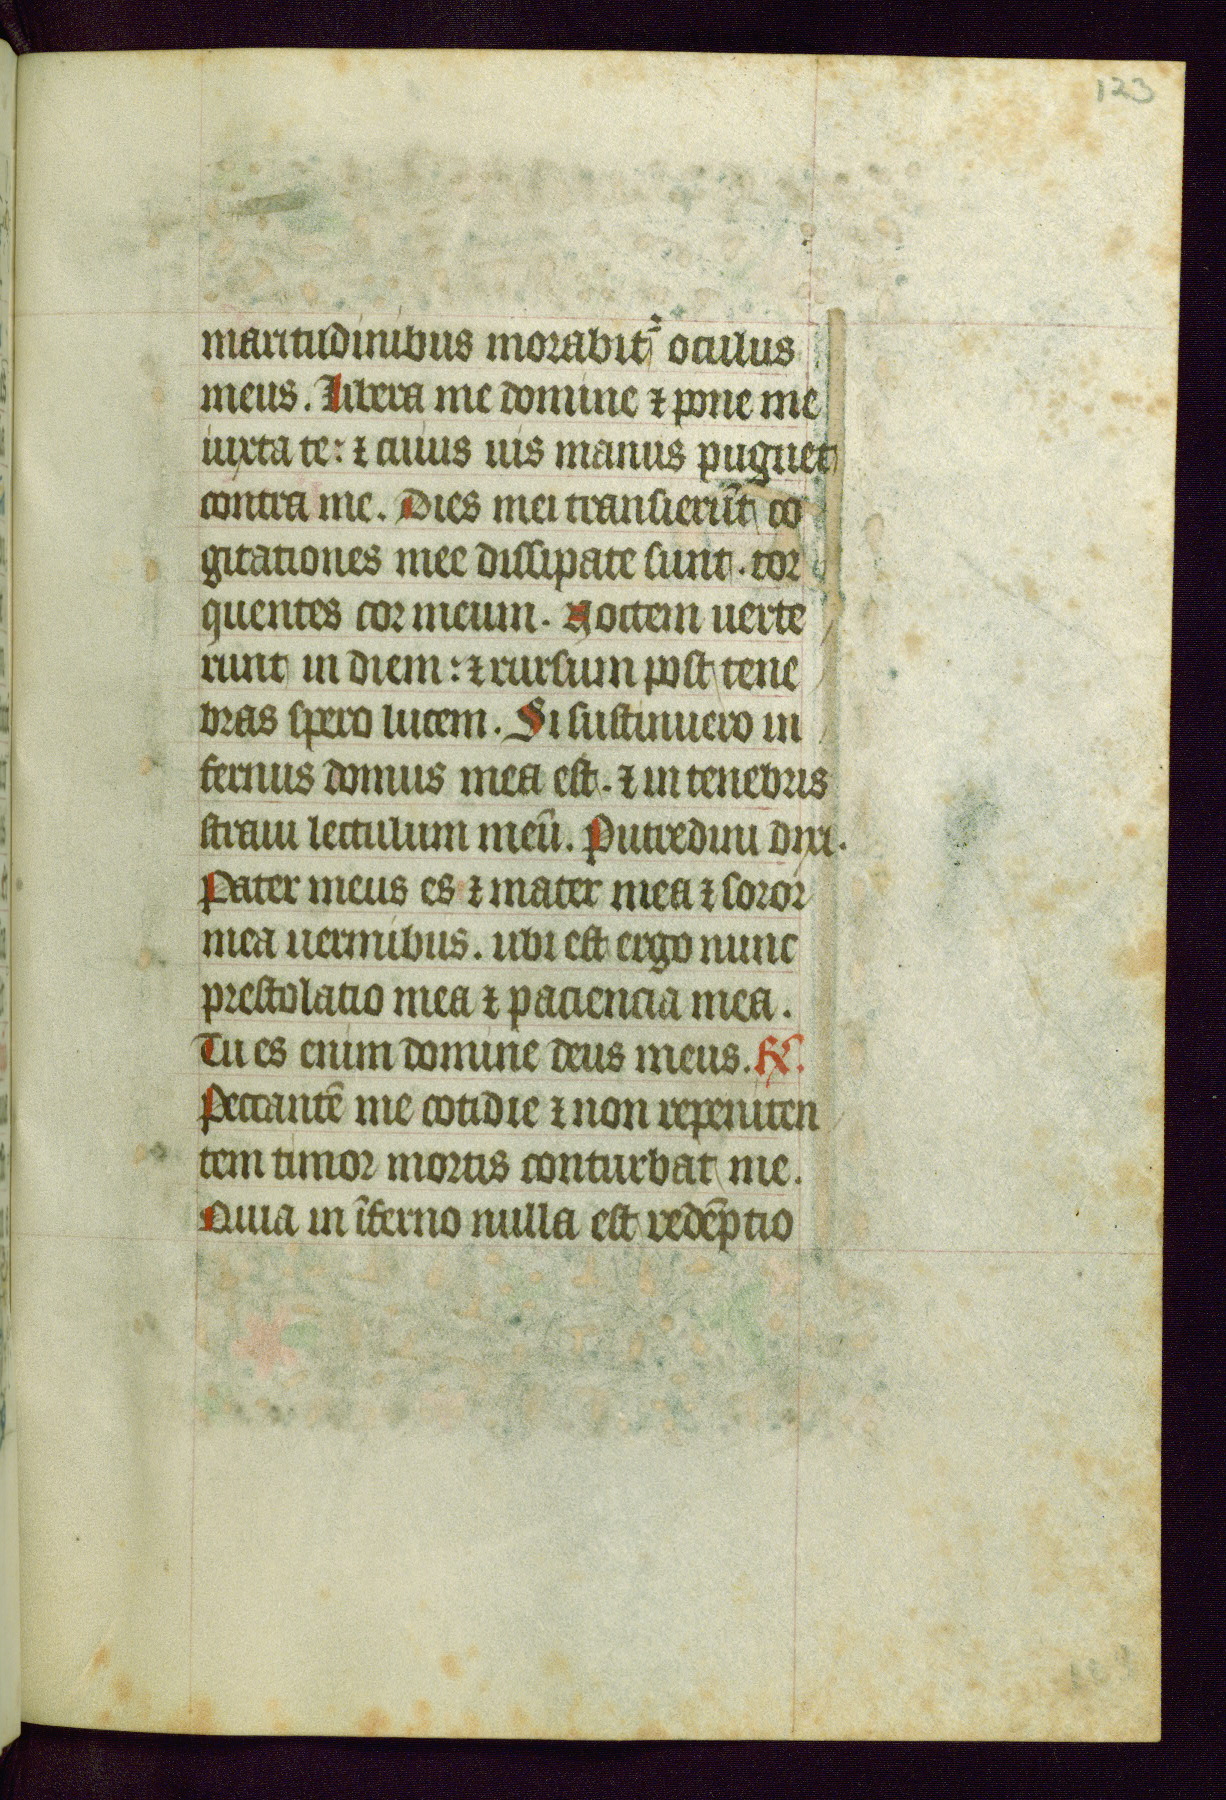 123
maritudinibus morabit᷑ oculus
meus. Libera me domine ⁊ pone me
iuxta te: ⁊ cuius uis manus pugnet
contra me. Dies mei transierūt co
gitationes mee dissipate sunt. tor
quentes cor meum. Noctem uerte
runt in diem: ⁊ rursum post tene
bras spero lucem. Si sustinuero in
fernus domus mea est. ⁊ in tenebris
straui lectulum meū. Putredini dixi.
Pater meus es ⁊ mater mea ⁊ soror
mea uermibus. ubi est ergo nunc
prestolatio mea ⁊ paciencia mea.
Tu es enim domine deus meus. R̸.
Peccantē me cotidie ⁊ non repeniten
tem timor mortis conturbat me.
Quia in īferno nulla est redēptio